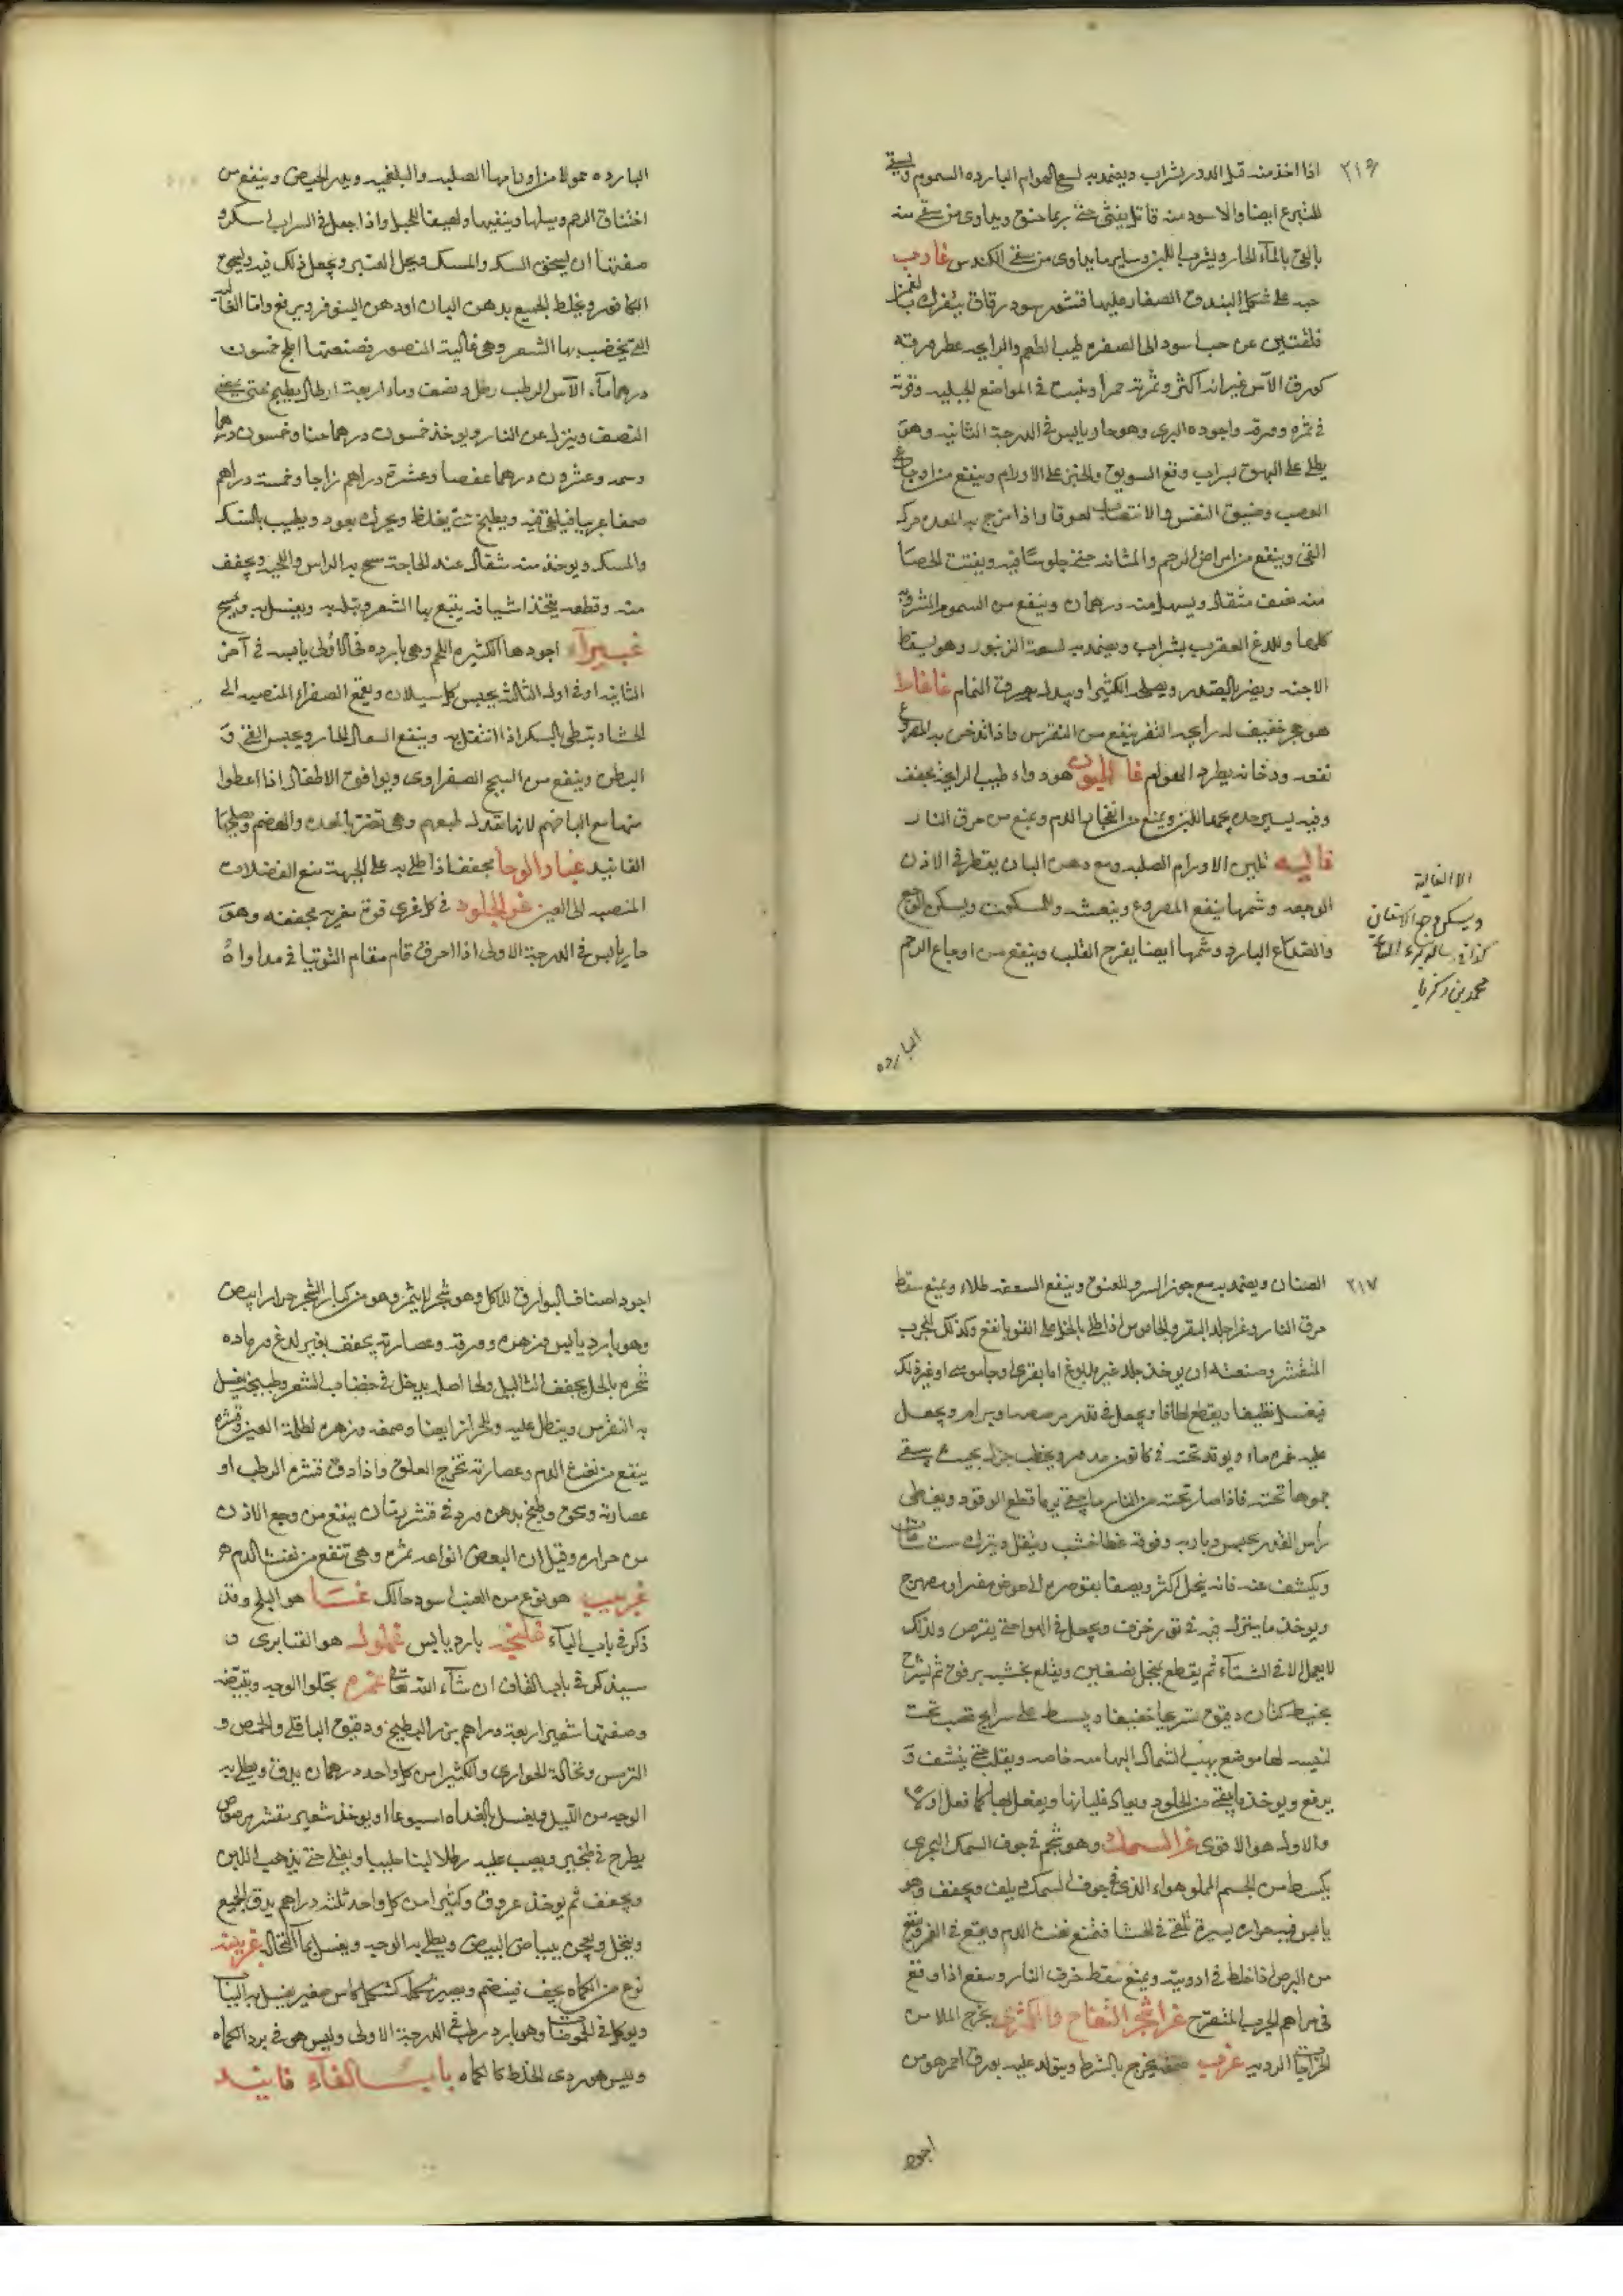 ٢١٦
اذا اخذ منه قدر الدور بشراب ويضمد به لسع الهوام البارده السموم ويسقى
للتبرع ايضا والاسود منه قاتل يغثى حتى ربما خنق ويداوى من سقى منه
بالقئ بالماء الحار ويشرب اللبن وسايرما يداوى من سقى الكندس غار حب
حبه على شكل البندق الصغار عليها قشور سود رقاق يتفرك بالغمز
فلقتين عن حب اسود الى الصفره طيب الطعم والرايحه عطر ورقه
كورق الآس غير انه اكثر وثمرته حمرا وينبت فى المواضع الجبليه وقوته
فى ثمره وورقه واجوده البرى وهو حار يابس فى الدرجة الثانيه وهو
يطلى على البهق بشراب ومع السويق والخبز على الاورام وينفع من اوجاع
العصب وضيق النفس والانتصاب لعوقا واذا مزج به المعده حرك
القئ وينفع من امراض الرحم والمثانه حتى جلوسا فيه ويفتت الحصا
منه نصف مثقال ويسهل منه درهمان وينفع من السموم المشروبة
كلها وللدغ العقرب بشراب ويضمد به لسعة الزنبور وهو يسقط
الاجنه ويضر بالصدر ويصلحه الكثيرا وبدله ورق النمام غاغاط
هو حجر خفيف له رايحه القفر ينفع من النقرس واذا تدخن به المصروع
نفعه ودخانه يطرد الهوام غاليون هو دواء طيب الرايحة يجفف
وفيه يسير حده يجمد اللبن ويمنع من انفجار الدم ويمنع من حرق النار
غاليه تلين الاورام الصلبه ومع دهن البان يقطر فى الاذن
الوجعه وشمها ينفع المصروع وينعشه وللسكوت ويسكن الوجع
والصداع البارد وشمها ايضا يفرح القلب وينفع من اوجاع الرحم
الا الغالية
ويسكن وجع الاسنان
محمد بن زكريا
البارده
البارده حمولا من اورامها الصلبه والبلغميه ويدر الحيض وينفع من
اختناق الرحم ويبلها وينقيها ولصيقا للحبل واذا جعل فى الشراب اسكر و
صفتها ان يسحق السك والمسك ويحل العنبر ويجعل ذلك فيه ويسحق
الكافور ويخلط الجميع بدهن البان او دهن النيلوفر ويرفع واما الغاليه
التى يخضب بها الشعر وهى غالية المنصور فصنعتها املج خمسون
درهما ماء الآس الرطب رطل ونصف وماء اربعة ارطال يطبخ حتى يبقى
النصف وينزل عن النار ويوخذ خمسون درهما حنا وخمسون درهما
وسمه وعشرون درهما عفصا وعشرة دراهم زاجا وخمسة دراهم
صمغا عربيا فيلقى فيه ويطبخ حتى يغلظ ويحرك بعود ويطيب بالسك
والمسك ويوخذ منه مثقال عند الحاجة يمسح به الراس واللحيه ويجفف
منه وقطعه يتخذ اشيافه يتبع بها الشعر ويبل به ويغسل به ويمسح
غبيرآء اجودها الكثيره اللحم وهى بارده فى الاولى يابسه فى آخر
الثانيه او فى اول الثالثه يحبس كل سيلان ويقمع الصفراء المنصبه الى
الحشا وتبطى بالسكر اذا انتقل به وينفع السعال الحار ويحبس القئ و
البطن وينفع من السحج الصفراوى ويوافق الاطفال اذا اعطوا
منها مع الباضم لانها تعدل طبعهم وهى تضر بالمعده والهضم ويصلحها
الفانيد غبار الرحا مجفف اذا طلى به على الجبهة منع الفضلات
المنصبه الى العين غرى الجلود فى كل غرى قوة مغريه مجففه وهو
حار يابس فى الدرجة الاولى اذا احرق قام مقام التوتيا فى مداواة
٢١٧
الصنان ويضمد به مع جوز السرو للفتق وينفع السعفه طلاء ويمنع تنقط
حرق النار وغرا جلد البقر والجاموس اذا طلى بالخل على القوبا نفع وكذلك الجرب
المتقشر وصنعته ان يوخذ جلد غير مدبوغ اما بقرى او جاموسى او غير ذلك
فيغسل نظيفا ويقطع لطافا ويجعل فى قدر مرصعه او برام ويجعل
عليه غمره ماء ويوقد تحته فى كانون مدمر ويحطب جزل بحيث يبقى
جموها تحته فاذا صار تحته من النار ما يرما قطع الوقود ويغطى
رأس القدر بحبس ودباربه وفوقه غطا خشب ويثقل ويترك ست ساعات
ويكشف عنه فانه ينحل اكثر ويصفا بقوصره الى حوض مقير او صهرج
ويوخذ ما ينزل فيه فى تور خزف ويجعل فى الهوا حتى يقرص ولذلك
لا يعمل الا فى الشتآء ثم يقطع بمنجل نصفين ويقلع بخشبه برفق ثم يشرح
بخيط كتان دقيق تشريحا خفيفا ويبسط على سرايج قصب تحت
لنفسه لها موضع يهب الشمال اليها منه خاصه ويقلب حتى ينشف و
يرفع ويوخذ ما يبقى من الجلود ويعاد غليانها ويفعل بها كما فعل اولا
والاول هو الاقوى غرا السمك وهو شحم فى جوف السمك البحرى
يكسط من الجسم المملو هواء الذى فى جوف السمك يلف ويجفف وهو
يابس فيه حراره يسيرة تلقى فى الحشا فتمنع نفث الدم ويقع فى الغروينفع
من البرص اذا خلط فى ادويته ويمنع تنقط حرق النار وينفع اذا وقع
فى مراهم الجرب المتقرح غرا شجر التفاح والكثرى يخرج الملاس من
الجراحات الرديه غرب صمغه يخرج بالشرط ويتولد عليه بورق احمر هو من
اجود
اجود اصناف البوارق للاكل وهو شجر لا يثمر وهو من كبار الشجر حرار ابيض
وهو بارد يابس وزهره وورقه وعصارته يجفف بغير لدغ ورماده
شجره بالخل يجفف الثاليل ولحا اصله يدخل فى خضاب الشعر وطبيخه يغسل
به النقرس وينطل عليه وللحزاز ايضا وصمغه وزهره لظلمة العين وقشره
ينفع من نفث الدم وعصارته تخرج العلق واذا دق قشره الرطب او
عصارته وسحق وطبخ بدهن ورد فى قشر رمان ينفع من وجع الاذن
من حراره وقيل ان البعض انواعه ثمره وهى تنفع من نفث الدم هـ
غربيب هو نوع من العنب اسود حالك غسا هو البلح وقد
ذكر فى باب البآء غليجن بارد يابس غملول هو القنابرى و
سيذكر فى باب القاف ان شآء الله تعالى غمره يجلوا الوجه وينقيه
وصفتها شعير اربعة دراهم بزر البطيخ ودقيق الباقلى والحمص و
الترمس ونخالة الحوارى والكثيرا من كل واحد درهمان يدق ويطلى به
الوجه من الليل ويغسل بالغداه اسبوعا او يوخذ شعير مقشر مرضوض
يطرح فى طنجير ويصب عليه رطلا لبنا حليبا ويغلى حتى يذهب اللبن
ويجفف ثم يوخذ عروق وكثيرا من كل واحد ثلثه دراهم يدق الجميع
وينخل ويعجن ببياض البيض ويطلى به الوجه ويغسل بمآ النخاله غريشه
نوع من الكماه يجف فينضم ويصير شكله كشكل كاس صغير يغسل به الثياب
ويوكل فى الحموضات وهو بارد رطب فى الدرجة الاولى وليس هو فى برد الكماه
وليس هو ردى الخلط كالكماه باب الفآء فانيد